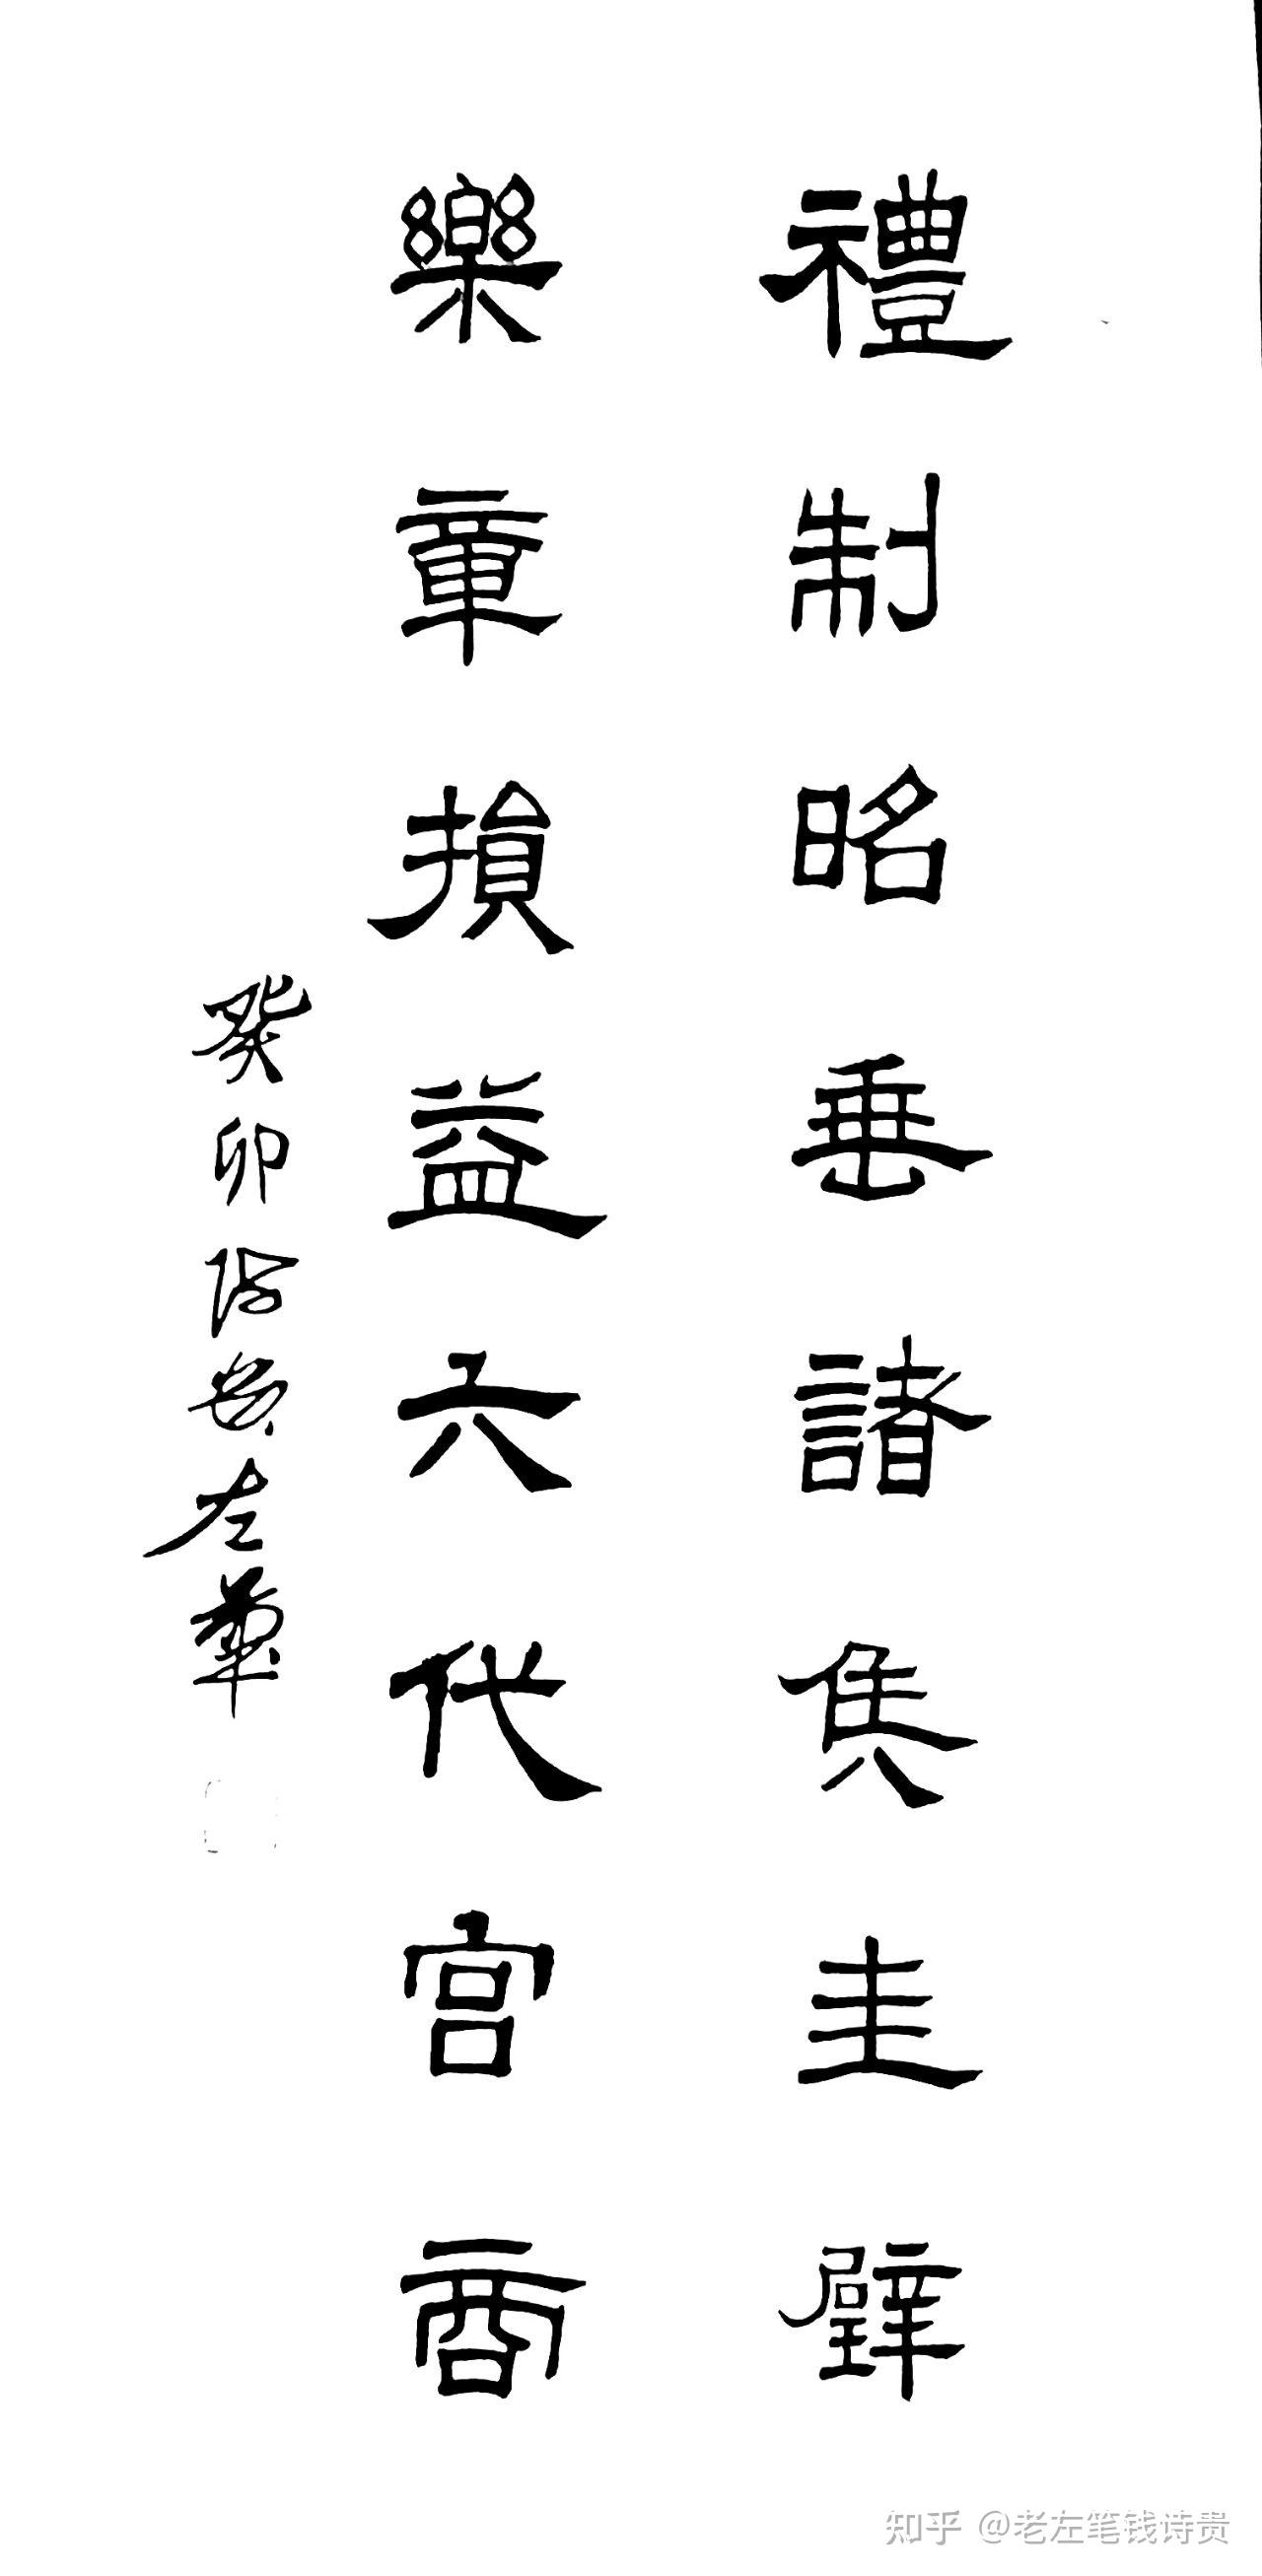 禮制昭垂諸侯圭璧
樂章損益六代宮商
癸卯 左華
知乎 @老左笔钱诗贵